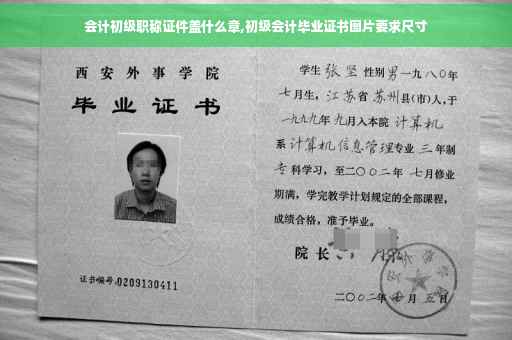 会计初级职称证件盖什么章,初级会计毕业证书图片要求尺寸
西安外事学院
毕业证书
证书编号:0209130411
学生 张坚 性别 男 一九八〇年
七月生, 江苏省 苏州县(市)人,于
一九九九年 九月入本院 计算机
系 计算机信息管理专业 三 年制
专 科学习, 至二〇〇二年 七月修业
期满, 学完教学计划规定的全部课程,
成绩合格, 准予毕业。
院长
二〇〇二年 月 五日